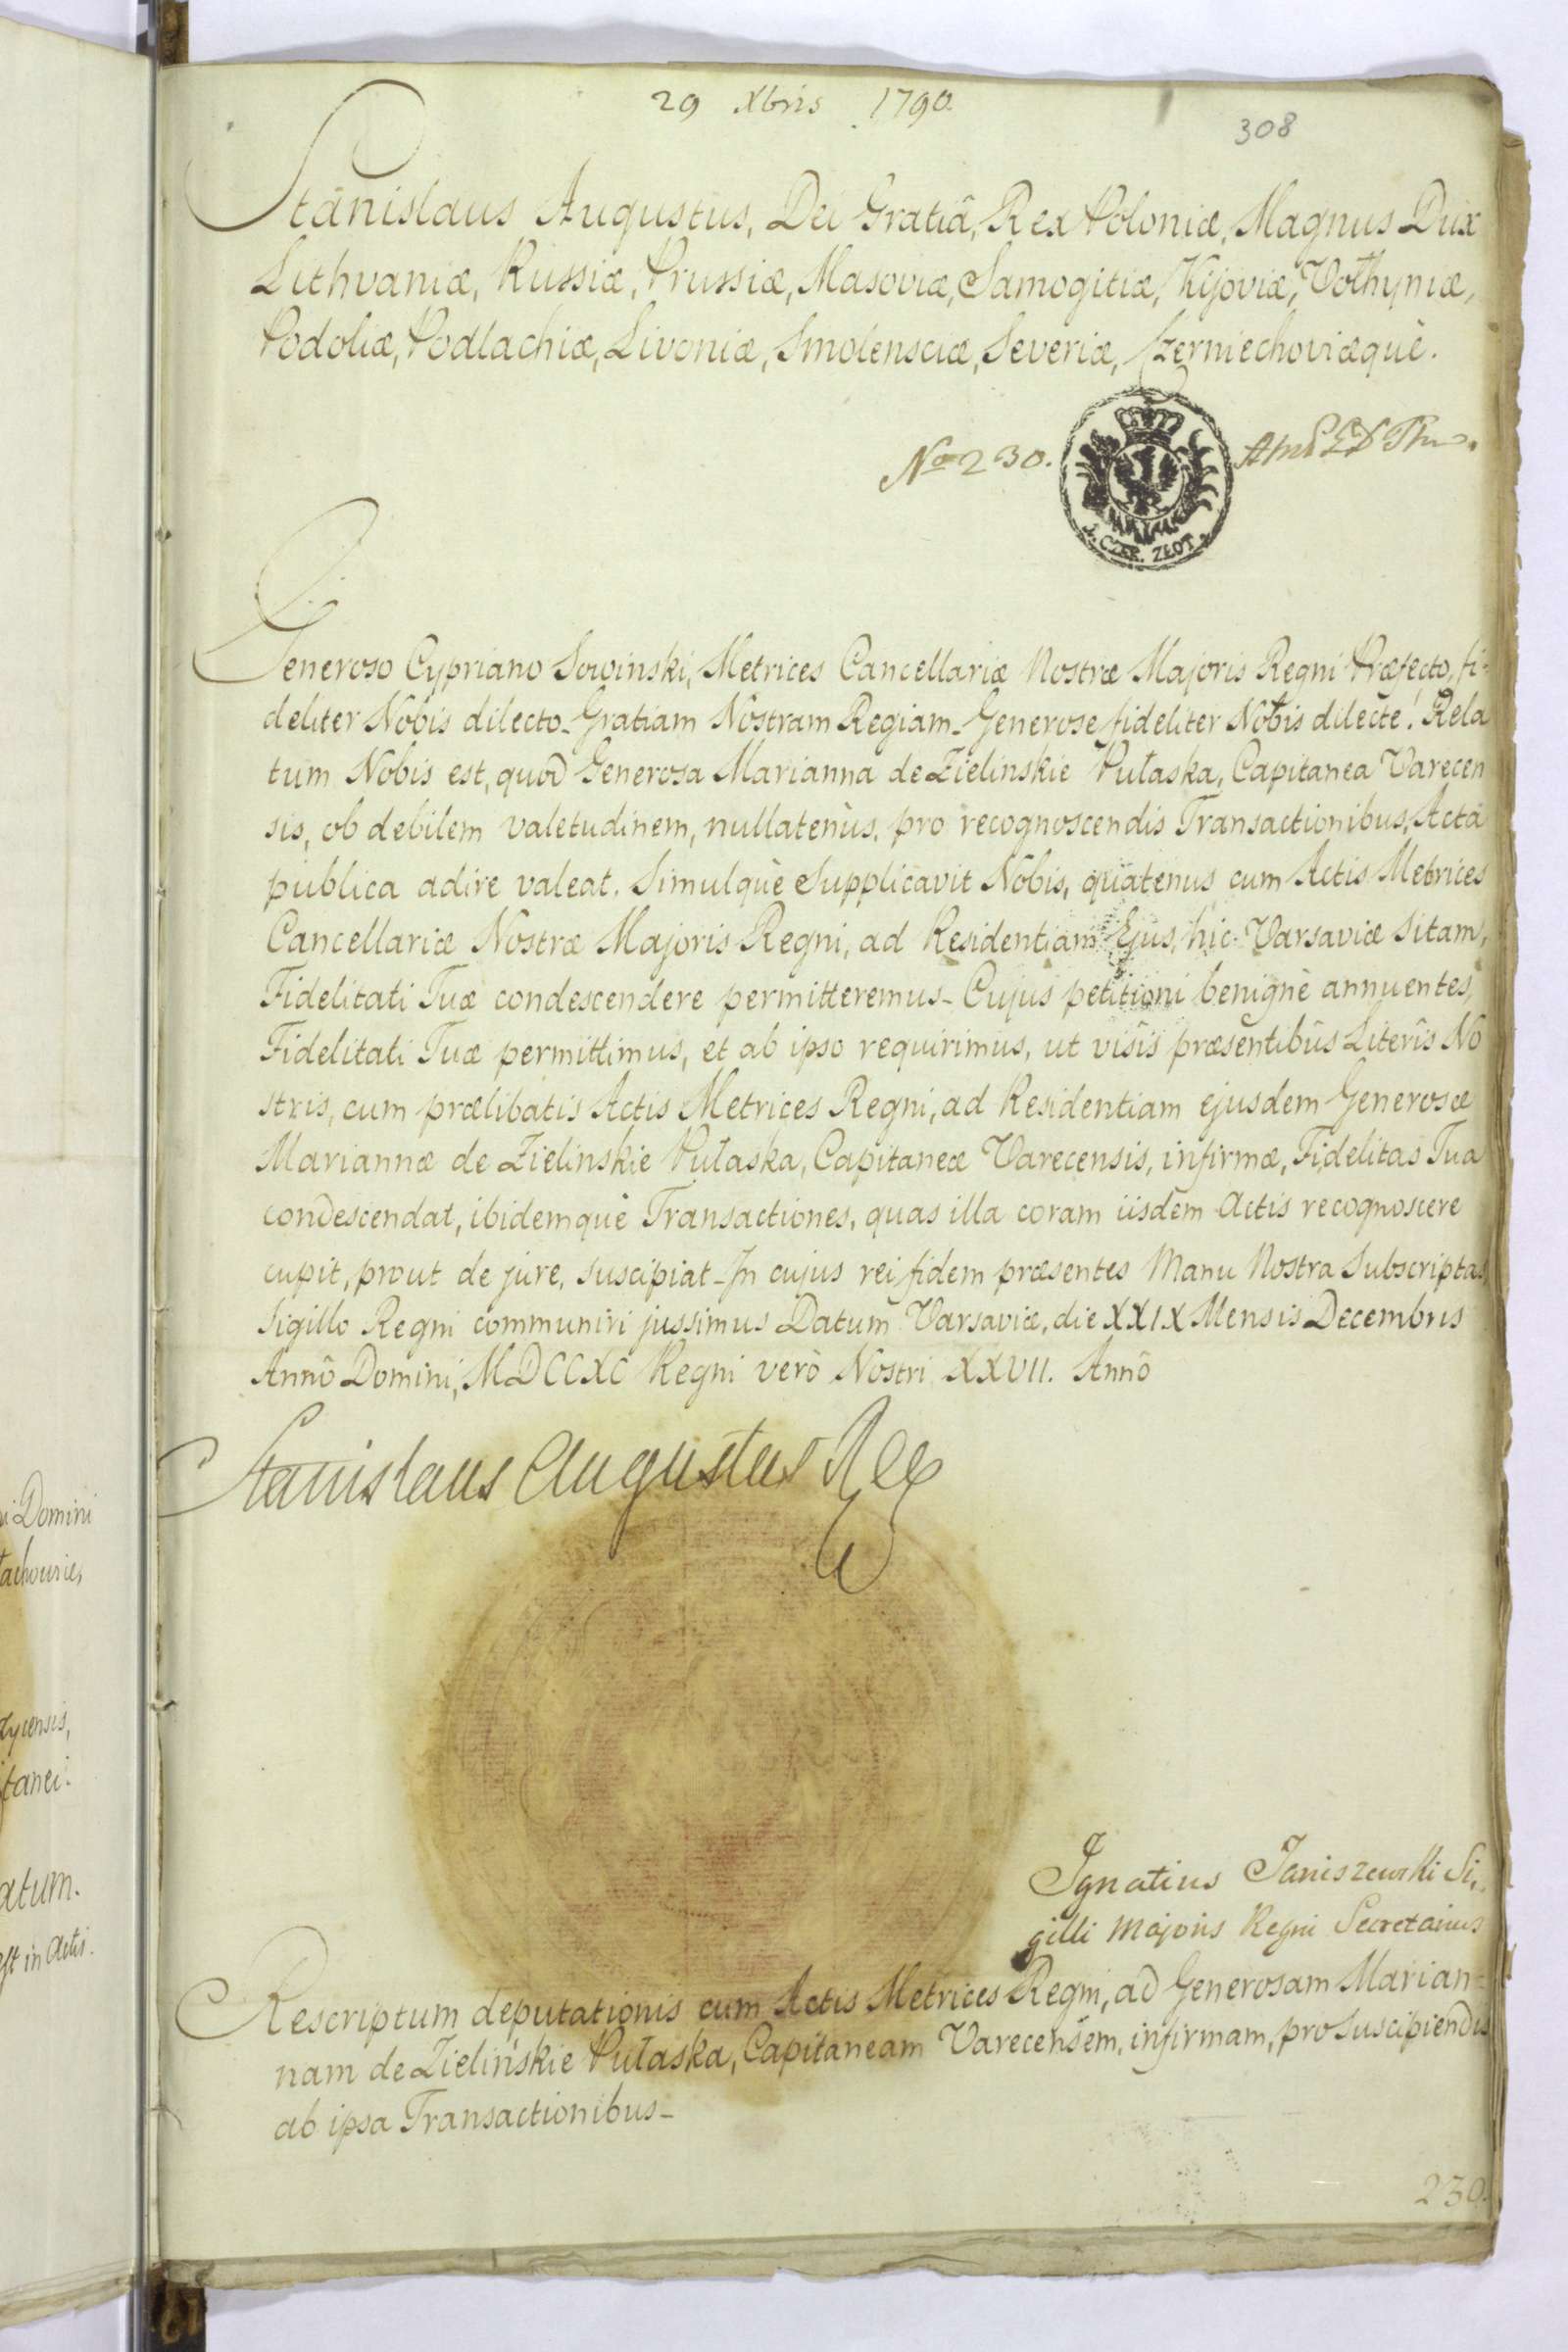 29 Xbris 1790.
308
Stanislaus Augustus, Dei Gratiâ, Rex Poloniæ, Magnus Dux
Lithvaniæ, Russiæ, Prussiæ, Masoviæ, Samogitiæ, Kijoviæ, Volhyniæ,
Podoliæ, Podlachiæ, Livoniæ, Smolensciæ, Severiæ, Czerniechoviæquè.
No 230.
1. CZER. ZŁOT
Generoso Cypriano Sowinski, Metrices Cancellariæ Nostræ Majoris Regni Præfecto, fi-
deliter Nobis dilecto_ Gratiam Nostram Regiam_ Generose fideliter Nobis dilecte! Rela
tum Nobis est, quod Generosa Marianna de Zielinskie Pułaska, Capitanea Varecen
sis, ob debilem valetudinem, nullatenùs, pro recognoscendis Transactionibus, Acta
publica adire valeat. Simulquè Supplicavit Nobis, quatenus cum Actis Metrices
Cancellariæ Nostræ Majoris Regni, ad Residentiam Ejus, hic Varsaviæ sitam,
Fidelitati Tuæ condescendere permitteremus_ Cujus petitioni benignè annuentes,
Fidelitati Tuæ permittimus, et ab ipso requirimus, ut visis præsentibûs Literîs No
stris, cum prælibatis Actis Metrices Regni, ad Residentiam ejusdem Generosæ
Mariannæ de Zielinskie Pułaska, Capitaneæ Varecensis, infirmæ, Fidelitas Tua
condescendat, ibidemquè Transactiones, quas illa coram iisdem Actis recognoscere
cupit, prout de jure, suscipiat_ In cujus rei fidem præsentes Manu Nostra Subscriptas,
Sigillo Regni communiri jussimus Datum Varsaviæ, die XXIX Mensis Decembris
Annô Domini, MDCCXC Regni verò Nostri XXVII. Annô
Stanislaus Augustus Rex
Ignatius Janiszewski Si,,
gilli Majoris Regni Secretarius
Rescriptum deputationis cum Actis Metrices Regni, ad Generosam Marian=
nam de Zielińskie Pułaska, Capitaneam Varecensem, infirmam, pro suscipiendis
ab ipsa Transactionibus_
230.
i Domini
tachoviæ,
dycensis,
itanei.
atum.
est in Actis.